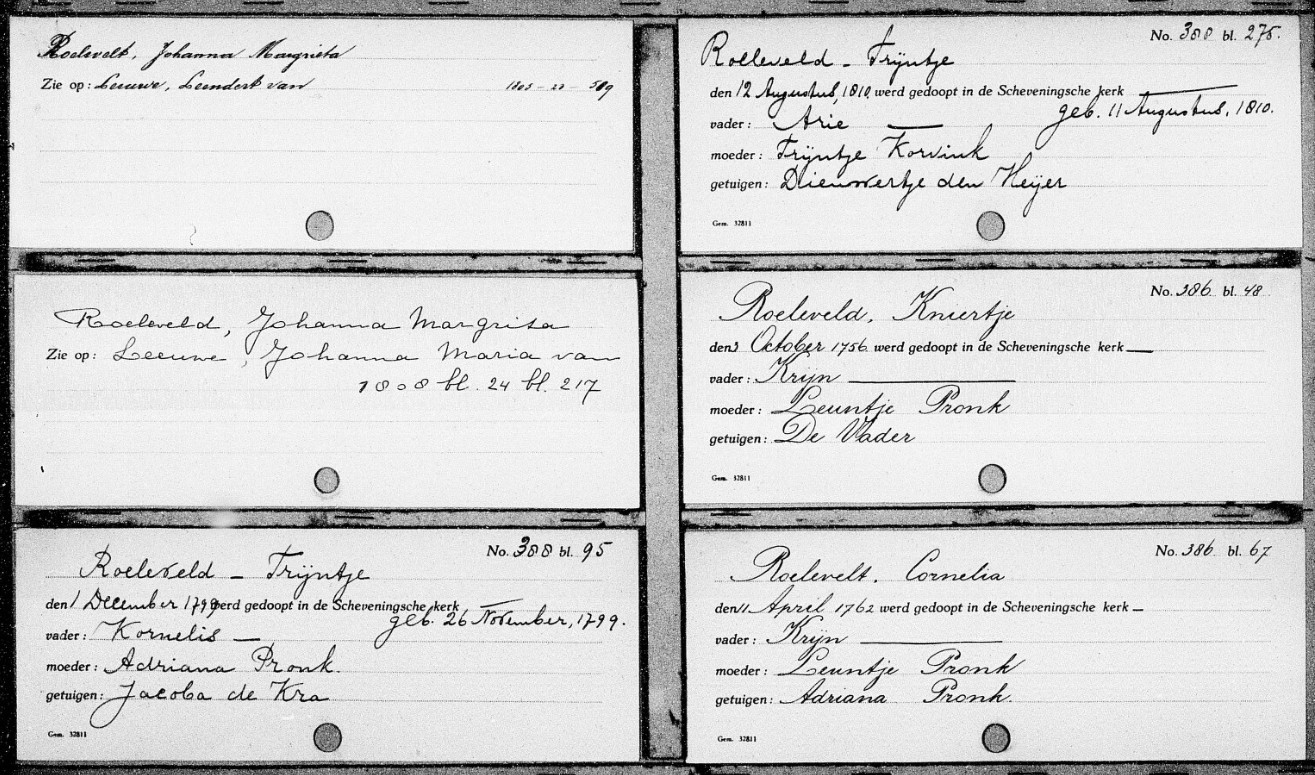 Roelevelt, Johanna Margrieta
Zie op: Leeuwe, Leendert van 1805 - 23 - 589
Roeleveld, Johanna Margrita
Zie op: Leeuwe, Johanna Maria van
1808 bl. 24 bl. 217
No. 388 bl. 95
Roeleveld - Trijntje
den 1 December 1799 werd gedoopt in de Scheveningsche kerk
geb. 26 November, 1799.
vader: Kornelis —
moeder: Adriana Pronk.
getuigen: Jacoba de Kra
Gem. 32811
No. 388 bl. 275.
Roeleveld - Trijntje
den 12 Augustus, 1810 werd gedoopt in de Scheveningsche kerk
geb. 11 Augustus, 1810.
vader: Arie —
moeder: Trijntje Korvink
getuigen: Dieuwertje den Heijer
Gem. 32811
No. 386 bl. 48
Roeleveld, Kniertje
den 3 October 1756 werd gedoopt in de Scheveningsche kerk —
vader: Krijn —
moeder: Leuntje Pronk
getuigen: De Vader
Gem. 32811
No. 386 bl. 67
Roelevelt, Cornelia
den 11 April 1762 werd gedoopt in de Scheveningsche kerk —
vader: Krijn —
moeder: Leuntje Pronk
getuigen: Adriana Pronk.
Gem. 32811